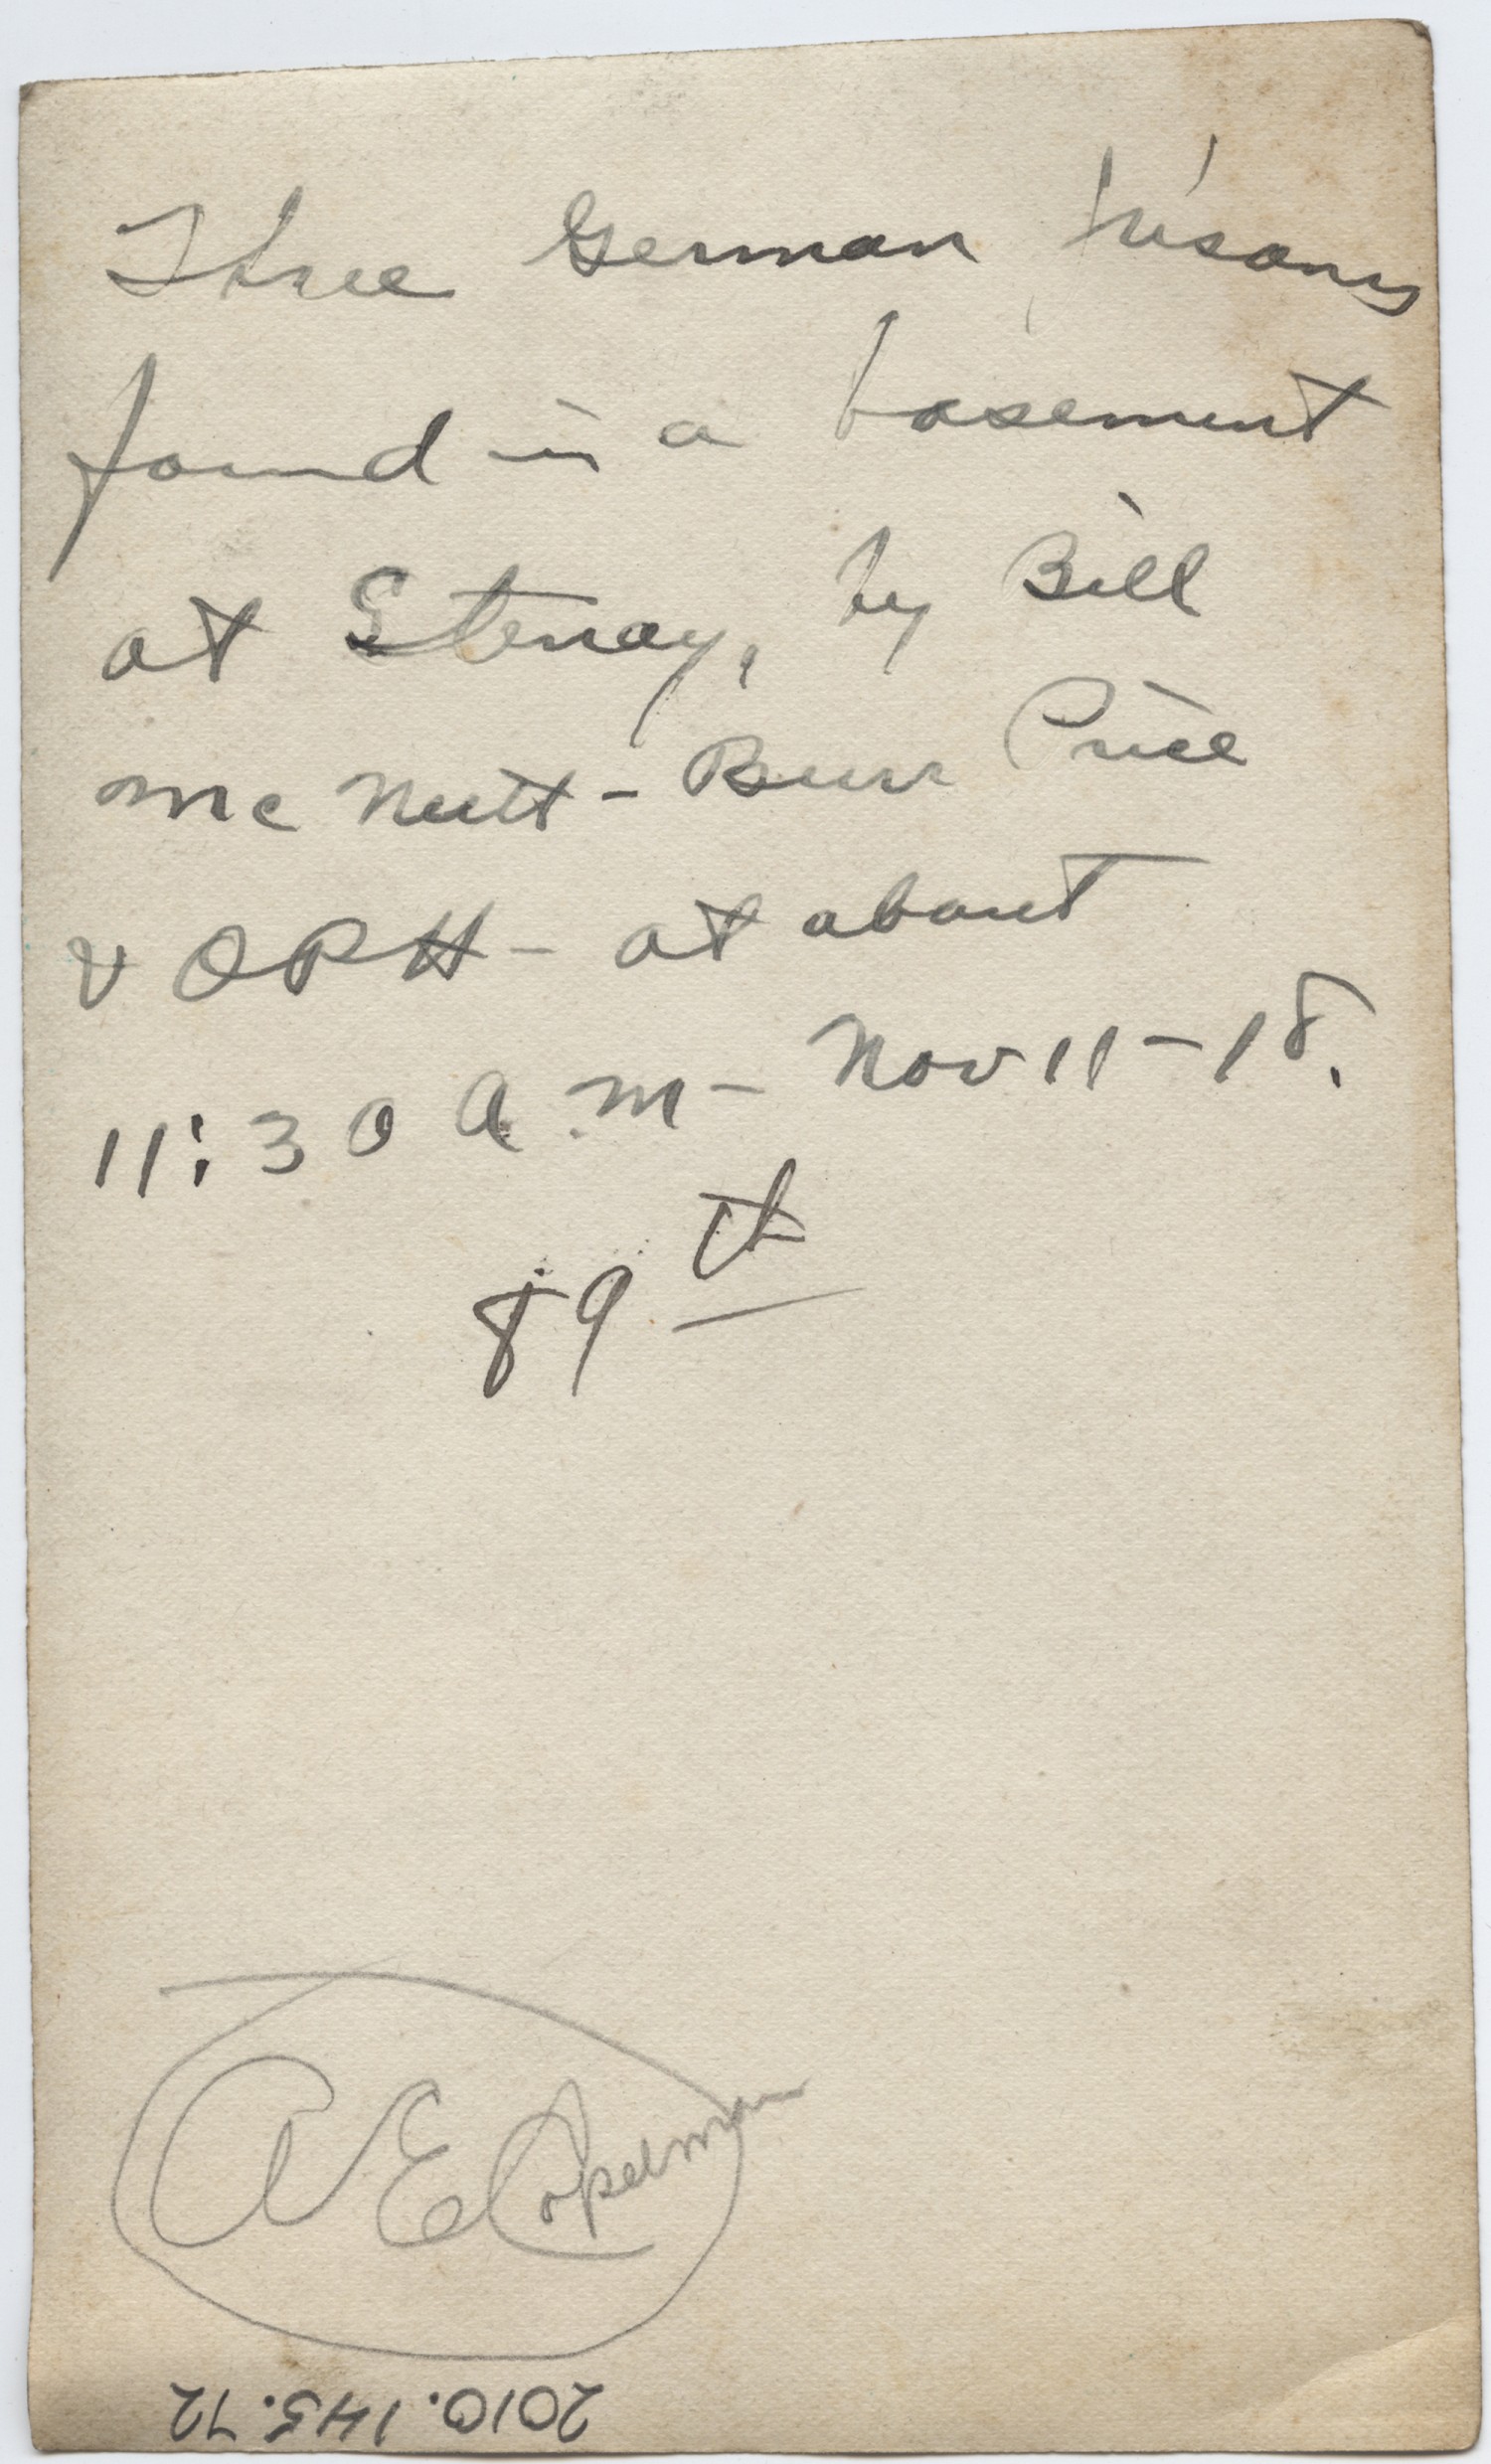 Three German prisoners
found in a basement
at Stenay, by Bill
McNutt - Burr Price
& OPH - at about
11:30 A.M - Nov 11 - 18.
89th
AE Copelman
2010.145.72